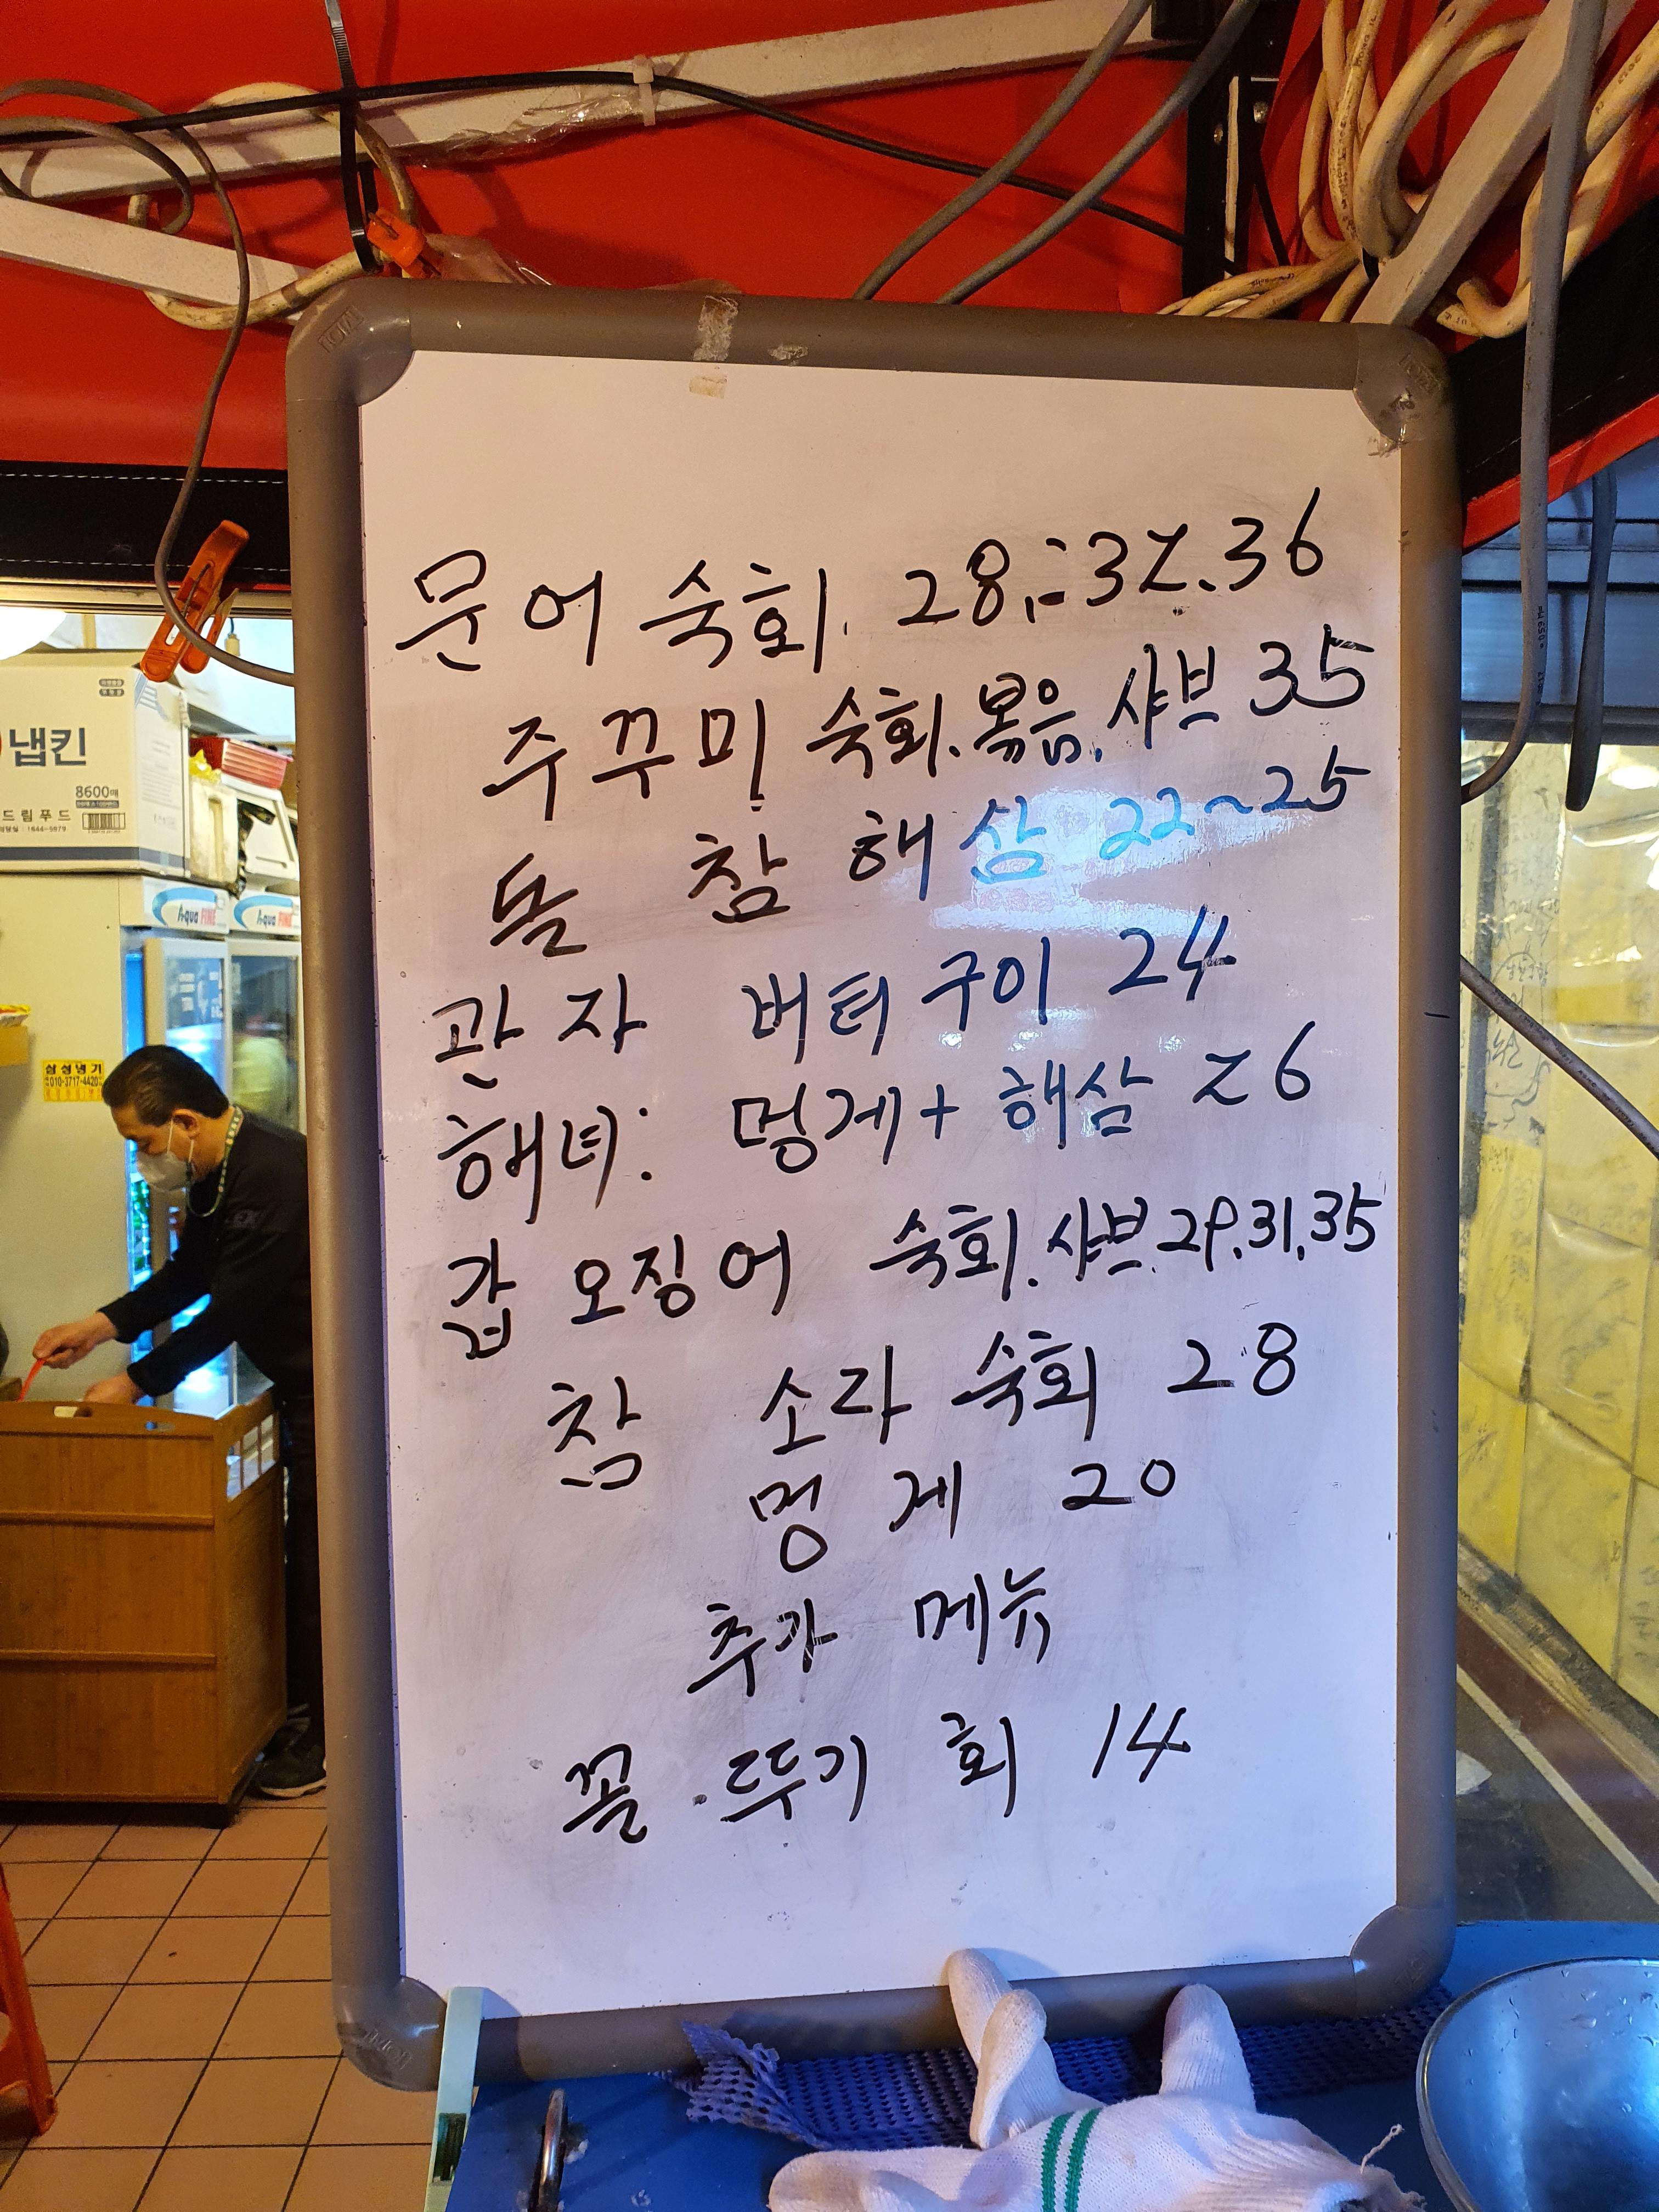 문어 숙회. 28.-32.36
주꾸미 숙회.볶음.샤브 35
돌 참 해삼 22~25
관자 버터구이 24
해녀: 멍게+해삼 26
갑오징어 숙회.샤브.29.31.35
참 소라 숙회 28
멍게 20
추가 메뉴
꼴.뚜기 회 14
냅킨
8600매
드림푸드
1644-5879
Aqua FINE
Aqua FINE
삼성냉기
010-3717-4420